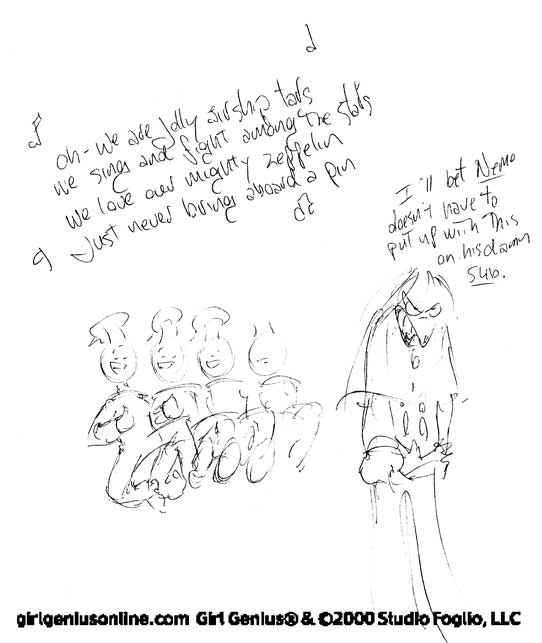 Oh - we are Jolly airship tars
we sing and fight among the stars
we love our mighty zeppelin
Just never bring aboard a pin
I'll bet Nemo
doesn't have to
put up with This
on his damn
Sub.
girlgeniusonline.com Girl Genius® & ©2000 Studio Foglio, LLC